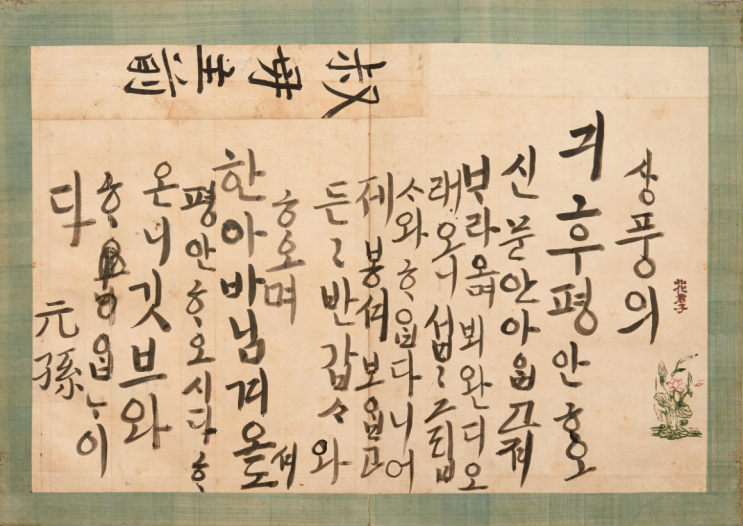 叔母主前
상풍의
긔후 평안ᄒᆞ오
신 문안 아ᄋᆞᆸ고져
ᄇᆞ라오며 뵈완디 오
래오니 섭〻 그립
ᄉᆞ와 ᄒᆞᄋᆞᆸ다니 어
제 봉셔 보ᄋᆞᆸ고
든〻 반갑ᄉᆞ와
ᄒᆞ오며
한아바님겨오셔도
평안ᄒᆞ오시다 ᄒᆞ
온니 깃브와
ᄒᆞᄋᆞᆸᄂᆞ이
다
元孫
花君子